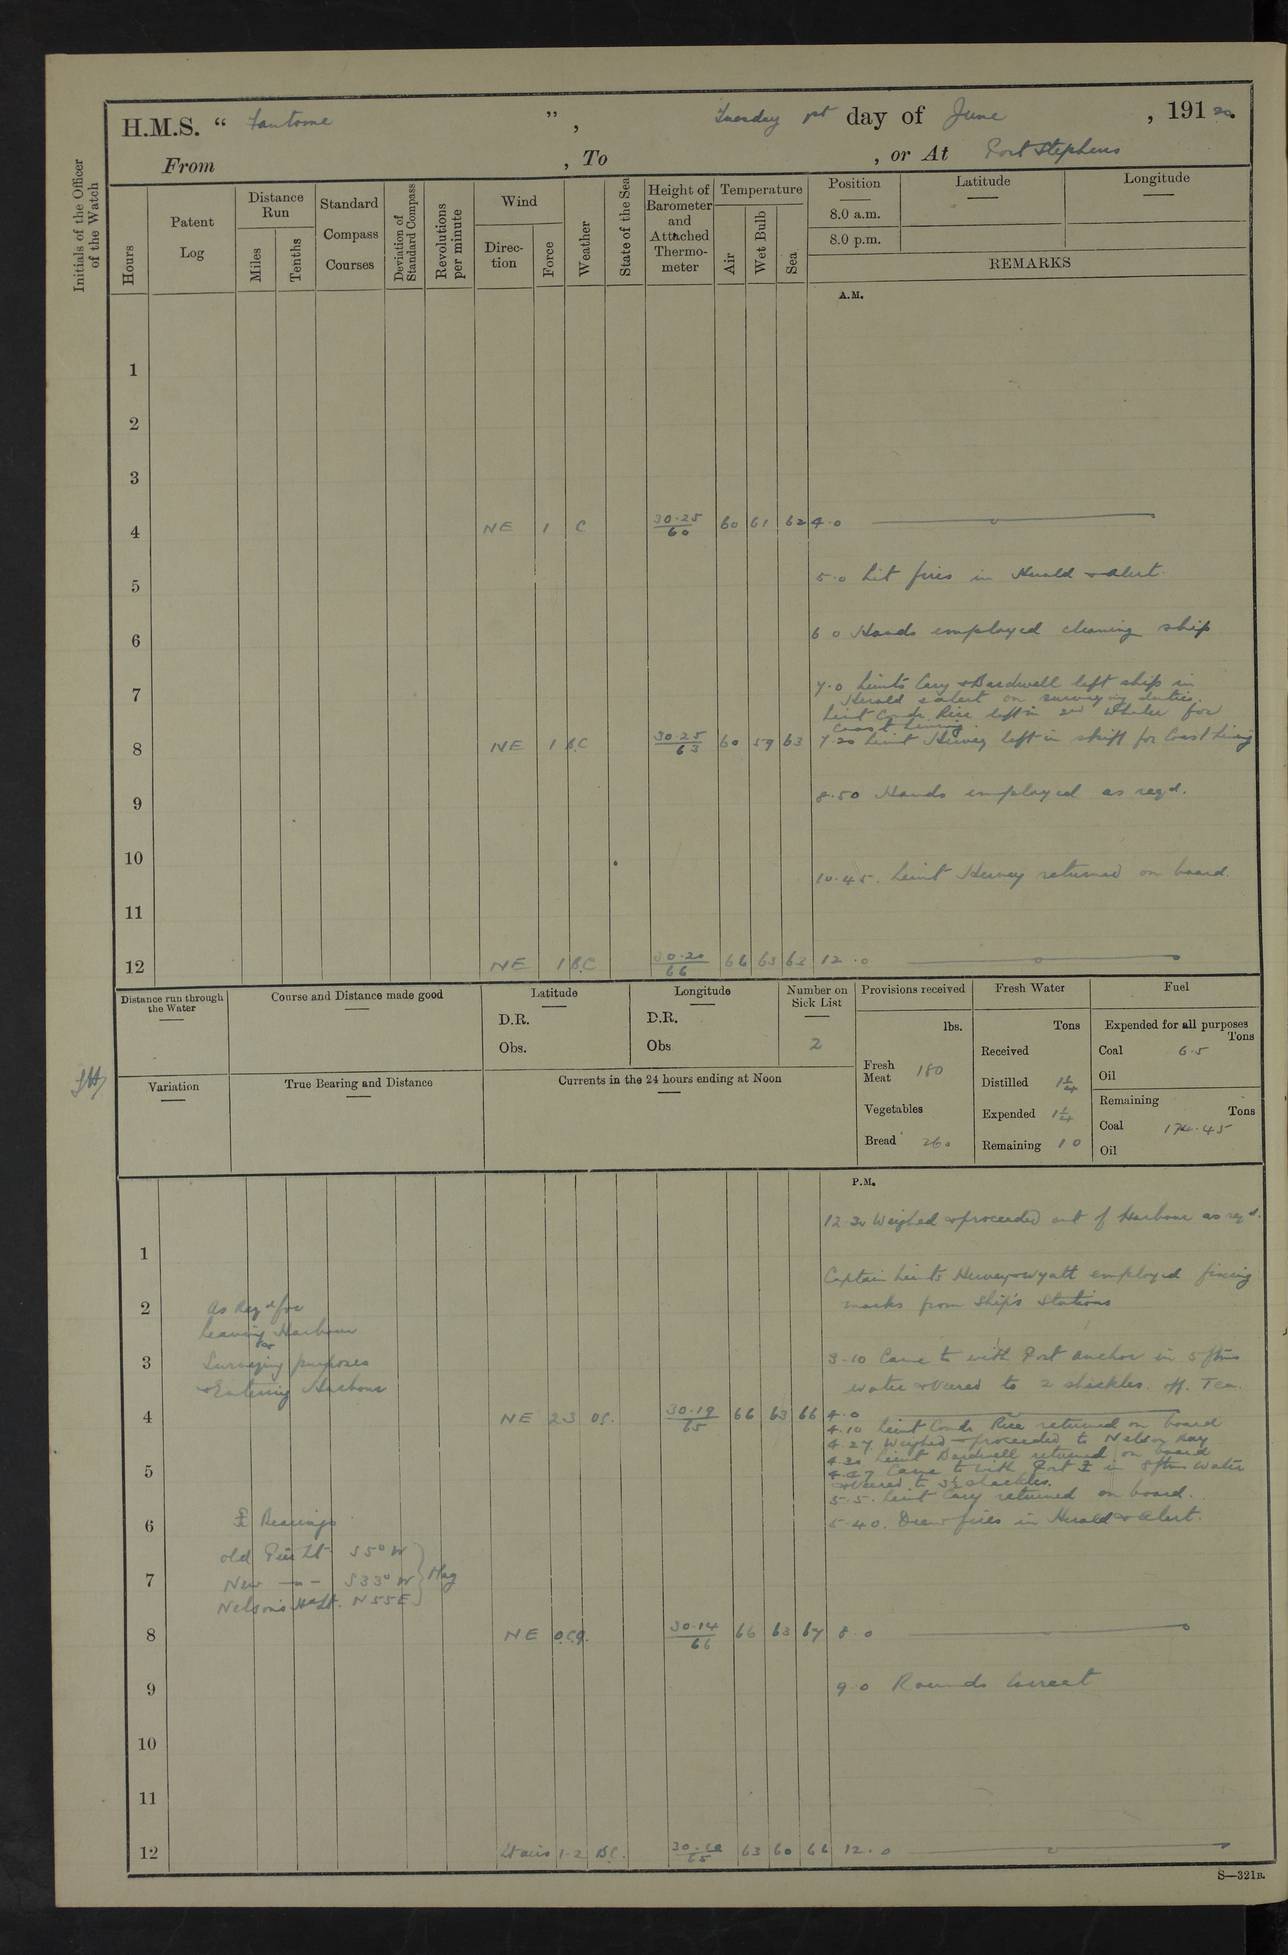 H.M.S. “ Fantome ”, Tuesday 1st day of June , 191 20.
From , To , or At Port Stephens
Initials of the Officer of the Watch
Hours
Patent Log
Distance Run
Miles
Tenths
Standard Compass Courses
Deviation of Standard Compass
Revolutions per minute
Wind
Direc-tion
Force
Weather
State of the Sea
Height of Barometer and Attached Thermo-meter
Temperature
Air
Wet Bulb
Sea
Position
8.0 a.m.
8.0 p.m.
Latitude
Longitude
REMARKS
A.M.
1
2
3
4 NE 1 C 30.25/60 60 61 62 4.0
5 5.0 Lit fires in Herald & Alert.
6 6 0 Hands employed cleaning ship
7 7.0 Lieuts Cary & Bardwell left ship in
Herald & Alert on surveying duties.
Lieut Comdr Rice left in 2nd Whaler for
Coast Lining
8 NE 1 B.C 30.25/63 60 59 63 7.20 Lieut Hervey left in skiff for Coast Lining
9 8.50 Hands employed as reqd.
10
10.45. Lieut Hervey returned on board.
11
12 NE 1 B.C 30.20/66 66 63 63 12.0
Distance run through the Water
Course and Distance made good
Latitude
D.R.
Obs.
Longitude
D.R.
Obs
Number on Sick List
2
Provisions received
lbs.
Fresh Meat 180
Vegetables
Bread 260
Fresh Water
Tons
Received
Distilled 1¼
Expended 1¼
Remaining 10
Fuel
Expended for all purposes
Tons
Coal 6.5
Oil
Remaining
Tons
Coal 174.45
Oil
Variation
True Bearing and Distance
Currents in the 24 hours ending at Noon
P.M.
12.30 Weighed & proceeded out of Harbour as reqd.
1
Captain Lieuts Hervey & Wyatt employed fixing
2 As Reqd for marks from Ship's Stations
leaving Harbour
for
3 Surveying purposes 3.10 Came to with Port anchor in 5 ftms
& Entering Harbour water & veered to 2 shackles. off. Tea.
4 NE 2.3 OC. 30.19/65 66 63 66 4.0
4.10 Lieut Comdr Rice returned on board
4.27 Weighed & proceeded to Nelson Bay
4.30 Lieut Bardwell returned on board
5 4.47 Came to with Port ⚓ in 8 ftms water
& veered to 3½ shackles.
5.5. Lieut Cary returned on board.
6 ⚓ Bearings 5.40. Drew fires in Herald & Alert.
old Pier Lt. S5°W
7 New -"- S33°W } Mag
Nelson's Hd Lt. N55E
8 NE O.C.Q. 30.14/66 66 63 67 8.0
9 9.0 Rounds Correct
10
11
12 Lt airs 1-2 B.C. 30.10/65 63 60 66 12.0
S—321B.